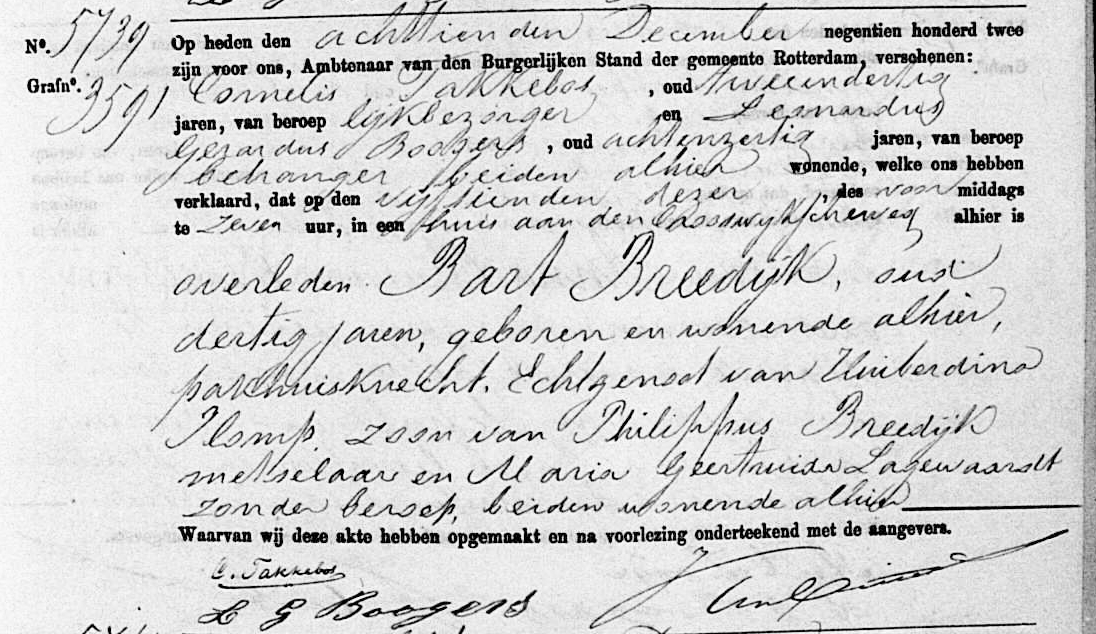 Nº. 5739 Op heden den achttienden December negentien honderd twee
zijn voor ons, Ambtenaar van den Burgerlijken Stand der gemeente Rotterdam, verschenen:
Grafnº. 3591 Cornelis Takkebos, oud tweeendertig
jaren, van beroep lijkbezorger en Leonardus
Gerardus Boogers, oud achtenzertig jaren, van beroep
behanger beiden alhier wonende, welke ons hebben
verklaard, dat op den vijftienden dezer, des voor middags
te zeven uur, in een huis aan den alhier is
overleden Bart Breedijk, oud
dertig jaren, geboren en wonende alhier,
pakhuisknecht. Echtgenoot van Huiberdina
Plomp, zoon van Philippus Breedijk
metselaar en Maria Geertruida Lagewaardt
zonder beroep, beiden wonende alhier
Waarvan wij deze akte hebben opgemaakt en na voorlezing onderteekend met de aangevers.
C. Takkebos
L G Boogers